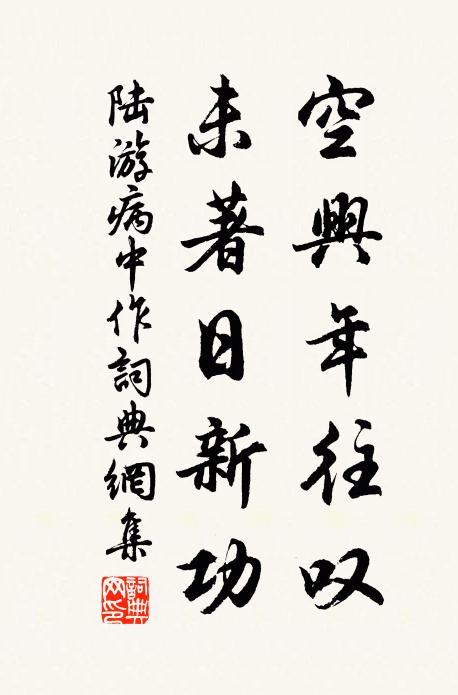 空興年往叹
未著日新功
陆游病中作詞典網集
詞典网印